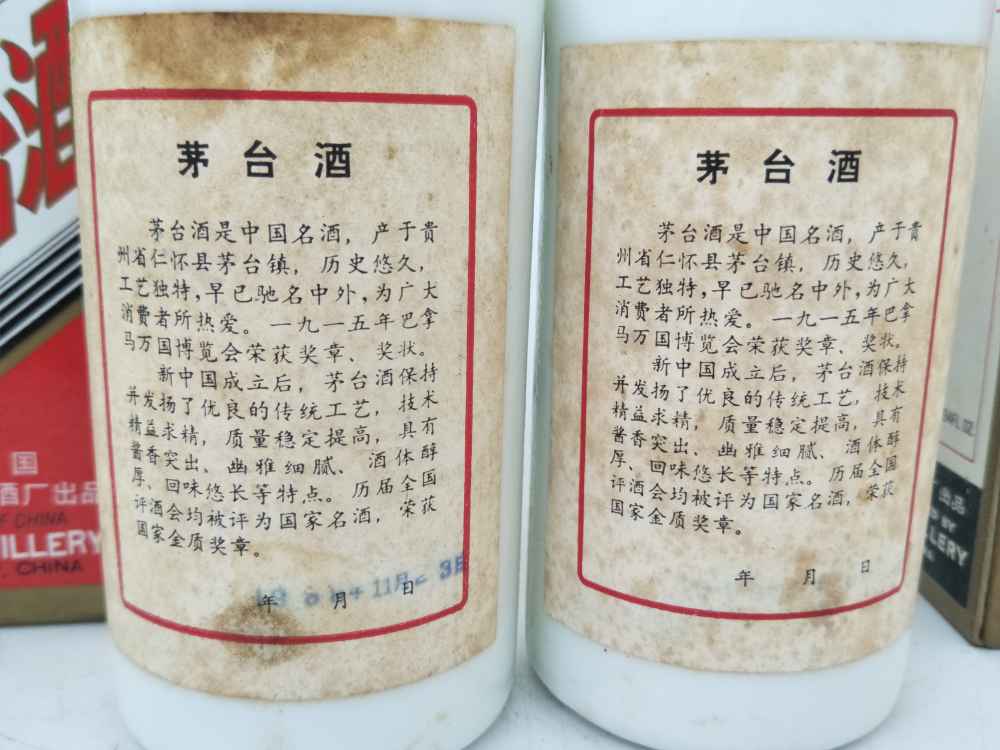 酒
茅台酒
茅台酒是中国名酒，产于贵
州省仁怀县茅台镇，历史悠久，
工艺独特，早已驰名中外，为广大
消费者所热爱。一九一五年巴拿
马万国博览会荣获奖章、奖状。
新中国成立后，茅台酒保持
并发扬了优良的传统工艺，技术
精益求精，质量稳定提高，具有
酱香突出、幽雅细腻、酒体醇
厚、回味悠长等特点。历届全国
评酒会均被评为国家名酒，荣获
国家金质奖章。
年 月 日
茅台酒
茅台酒是中国名酒，产于贵
州省仁怀县茅台镇，历史悠久，
工艺独特，早已驰名中外，为广大
消费者所热爱。一九一五年巴拿
马万国博览会荣获奖章、奖状。
新中国成立后，茅台酒保持
并发扬了优良的传统工艺，技术
精益求精，质量稳定提高，具有
酱香突出、幽雅细腻、酒体醇
厚、回味悠长等特点。历届全国
评酒会均被评为国家名酒，荣获
国家金质奖章。
年 月 日
国
酒厂出品
OF CHINA
ILLERY
CHINA
FL OZ
出品
BY
LLERY